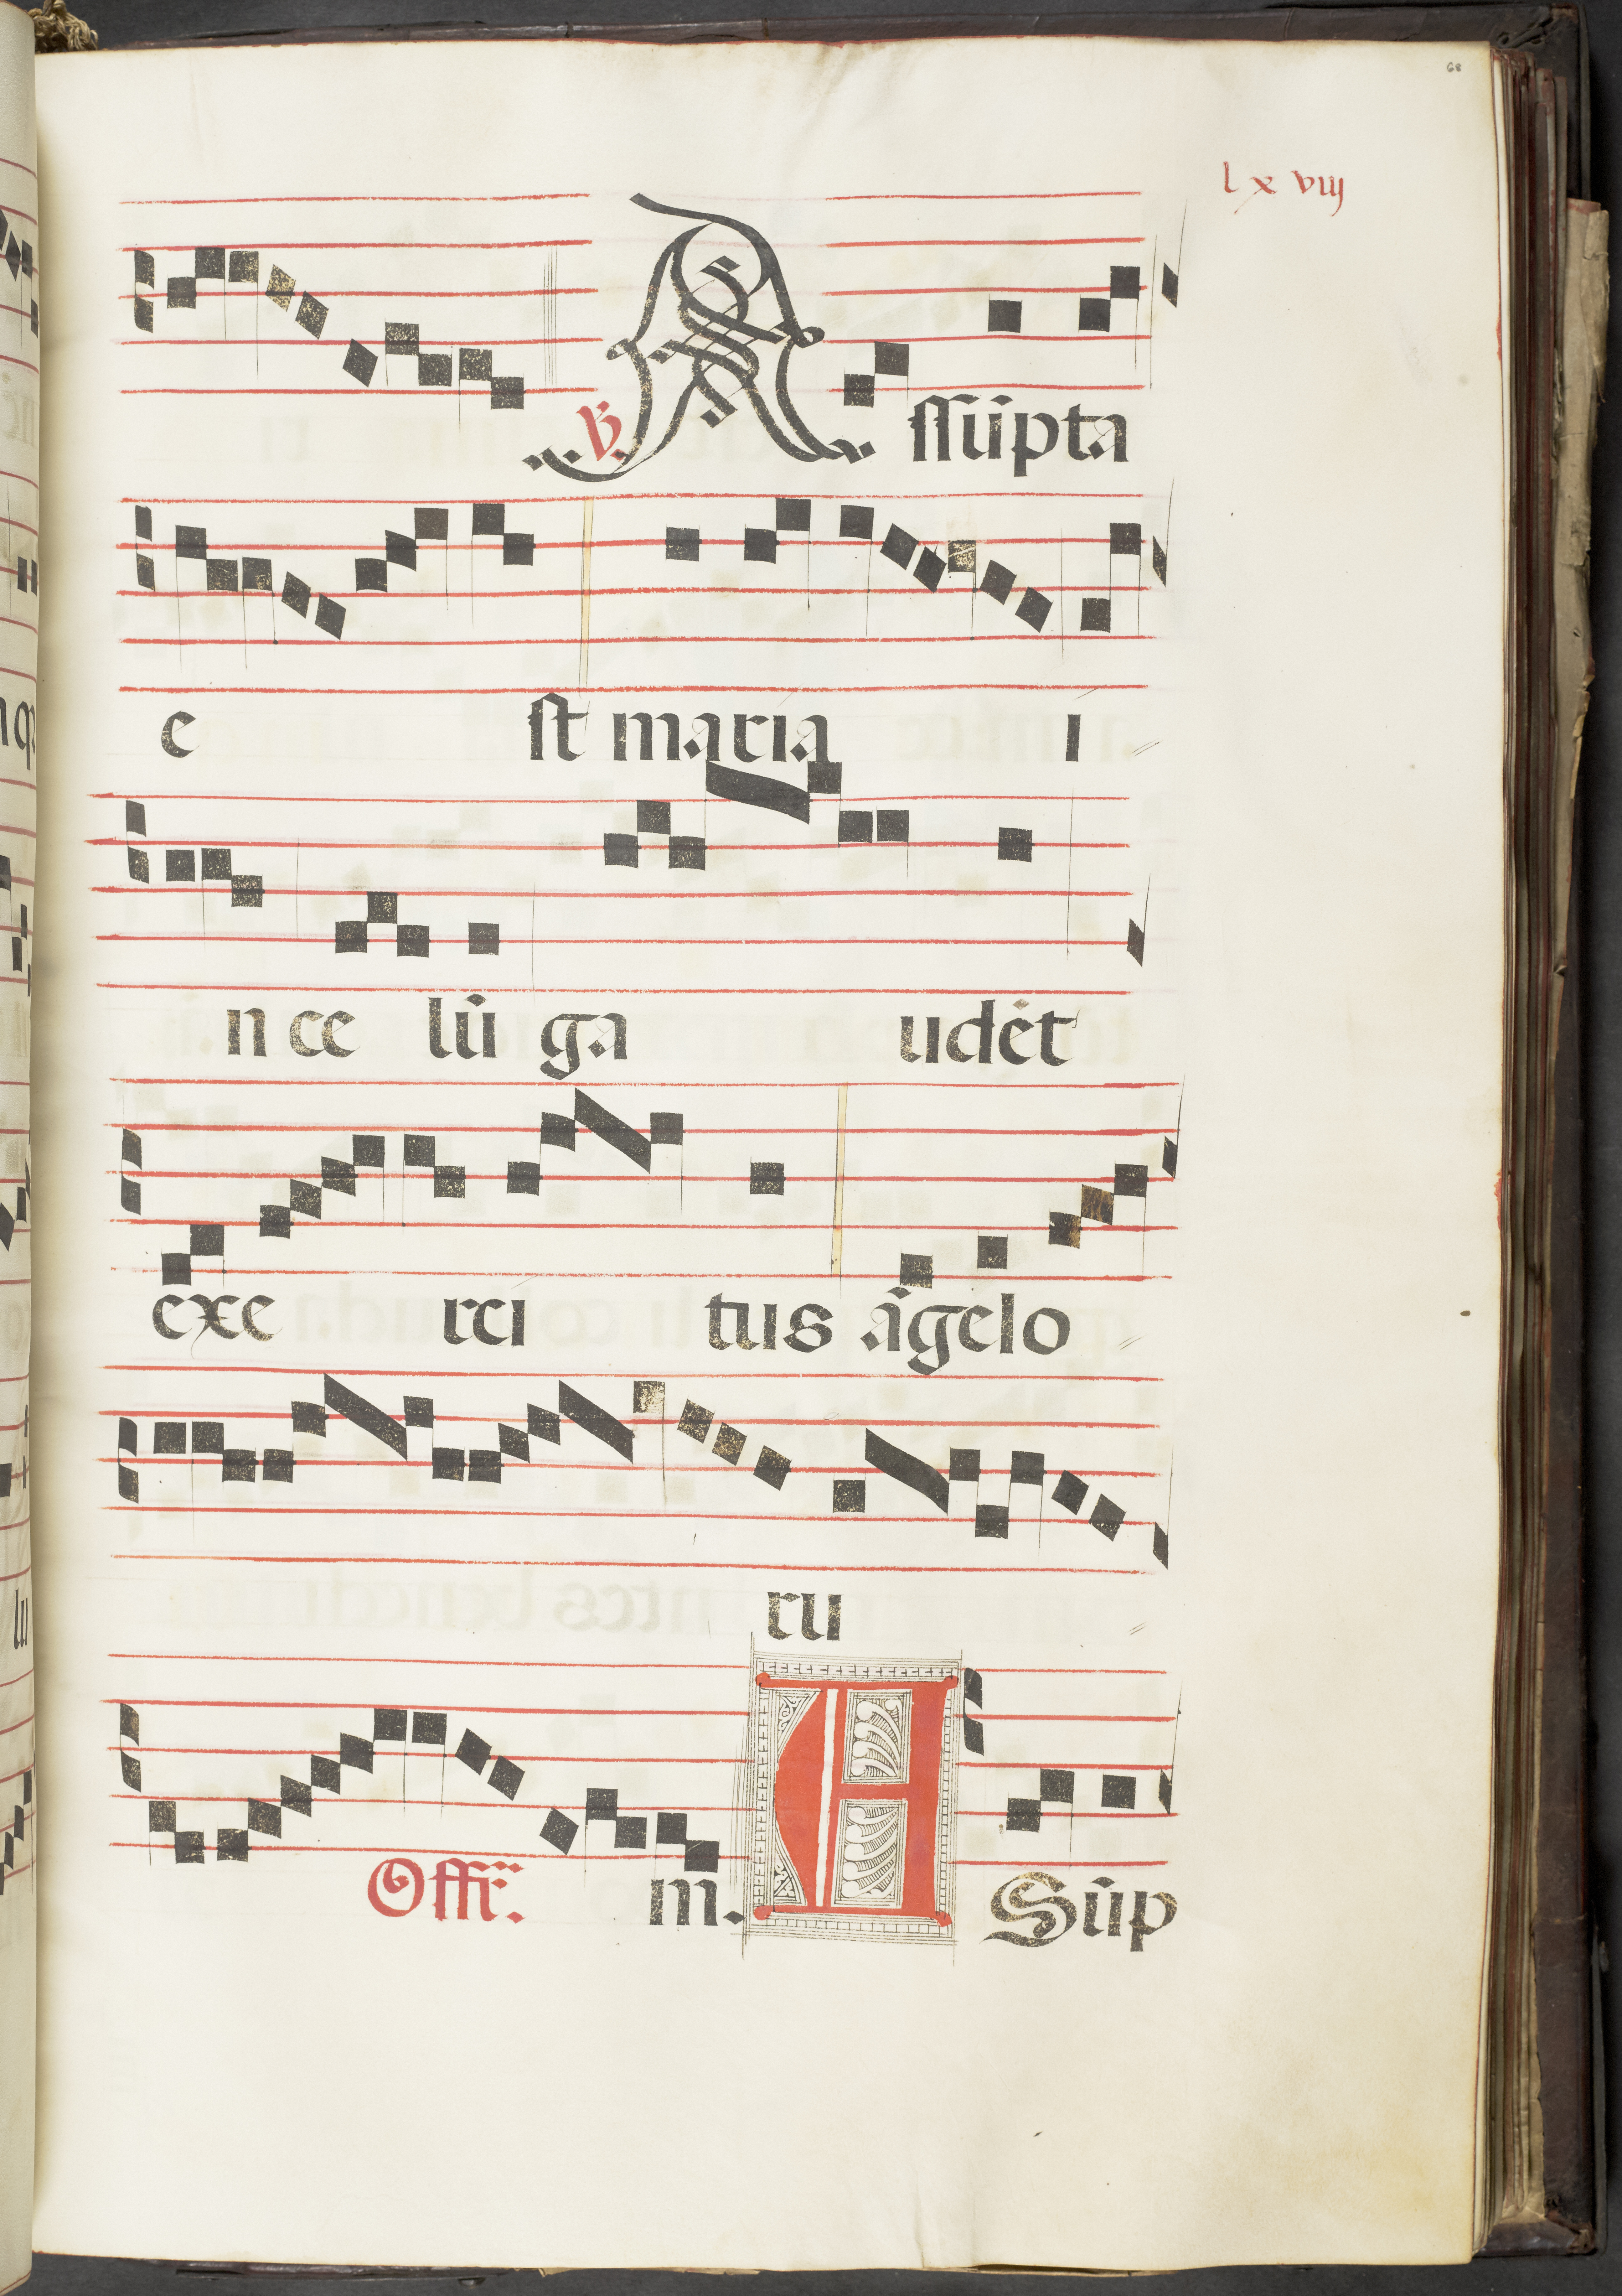 68
lxviij
℣. Assūpta
e st maria i
n ce lū ga udēt
exe rci tus āgelo
ru
Offr̄. m. ASūp